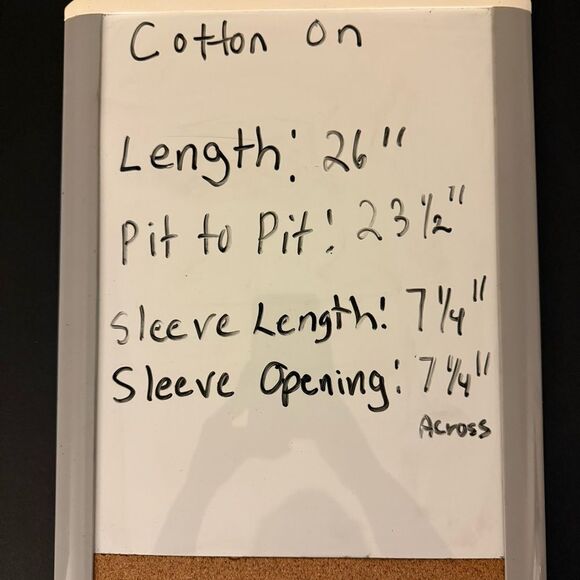 Cotton On
Length: 26"
Pit to Pit: 23 1/2"
Sleeve Length: 7 1/4"
Sleeve Opening: 7 1/4"
Across